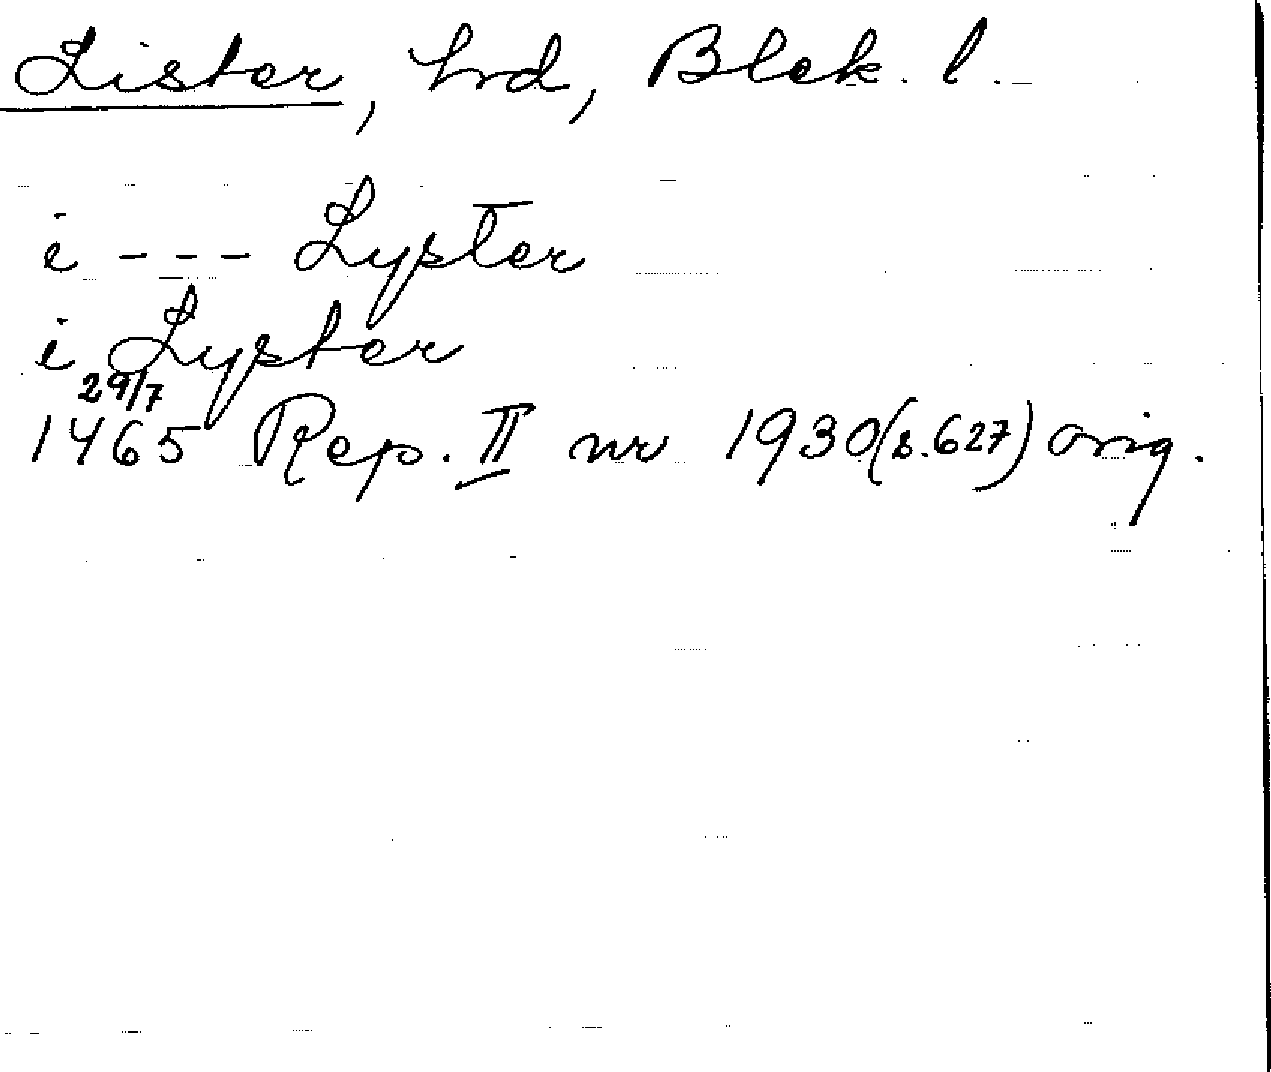 Lister, hrd, Blek. l.
i - - - Lyster
i Lyster
29/7
1465 Rep. II nr 1930 (s. 627) orig.